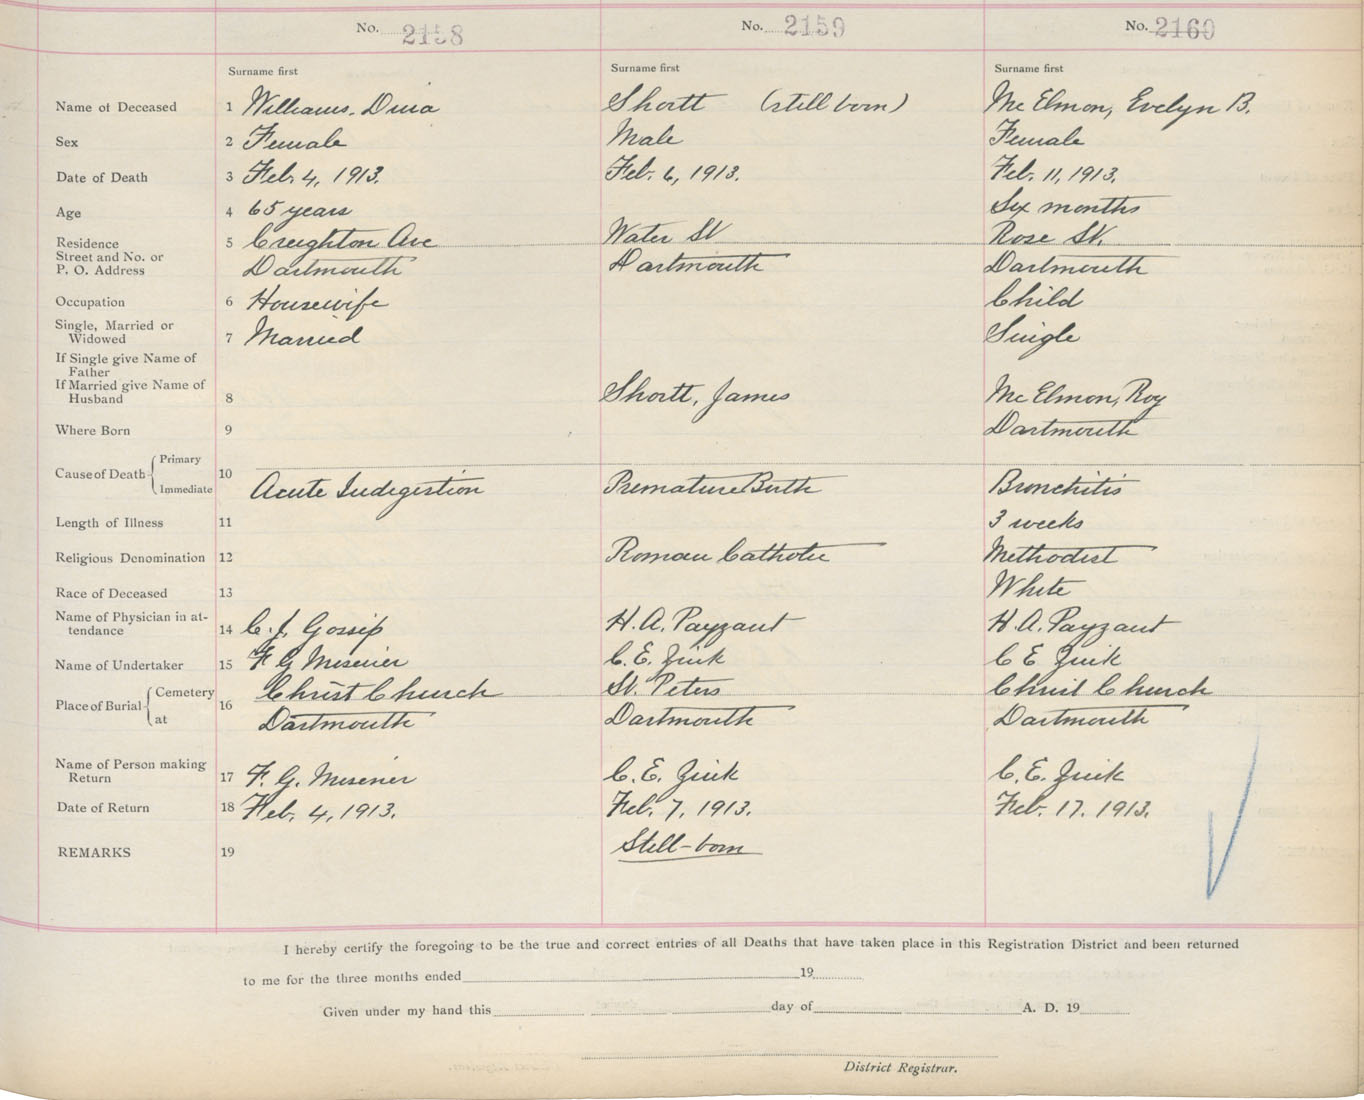 No. 2158 No. 2159 No. 2160
Surname first Surname first Surname first
Name of Deceased 1 Williams, Dina Shortt (still born) Mc Elmon, Evelyn B.
Sex 2 Female Male Female
Date of Death 3 Feb. 4, 1913. Feb. 6, 1913. Feb. 11, 1913.
Age 4 65 years Six months
Residence 5 Creighton Ave Water St Rose St.
Street and No. or
P. O. Address Dartmouth Dartmouth Dartmouth
Occupation 6 Housewife Child
Single, Married or
Widowed 7 Married Single
If Single give Name of
Father
If Married give Name of
Husband 8 Shortt, James Mc Elmon, Roy
Where Born 9 Dartmouth
Primary
Cause of Death 10
Immediate Acute Indigestion Premature Birth Bronchitis
Length of Illness 11 3 weeks
Religious Denomination 12 Roman Catholic Methodist
Race of Deceased 13 White
Name of Physician in at-
tendance 14 C. J. Gossip H. A. Payzant H. A. Payzant
Name of Undertaker 15 F G Misener C. E. Zink C E Zink
Cemetery Christ Church St. Peters Christ Church
Place of Burial 16
at Dartmouth Dartmouth Dartmouth
Name of Person making
Return 17 F. G. Misener C. E. Zink C. E. Zink
Date of Return 18 Feb. 4, 1913. Feb. 7, 1913. Feb. 17. 1913.
REMARKS 19 Still-born
I hereby certify the foregoing to be the true and correct entries of all Deaths that have taken place in this Registration District and been returned
to me for the three months ended 19
Given under my hand this day of A. D. 19
District Registrar.